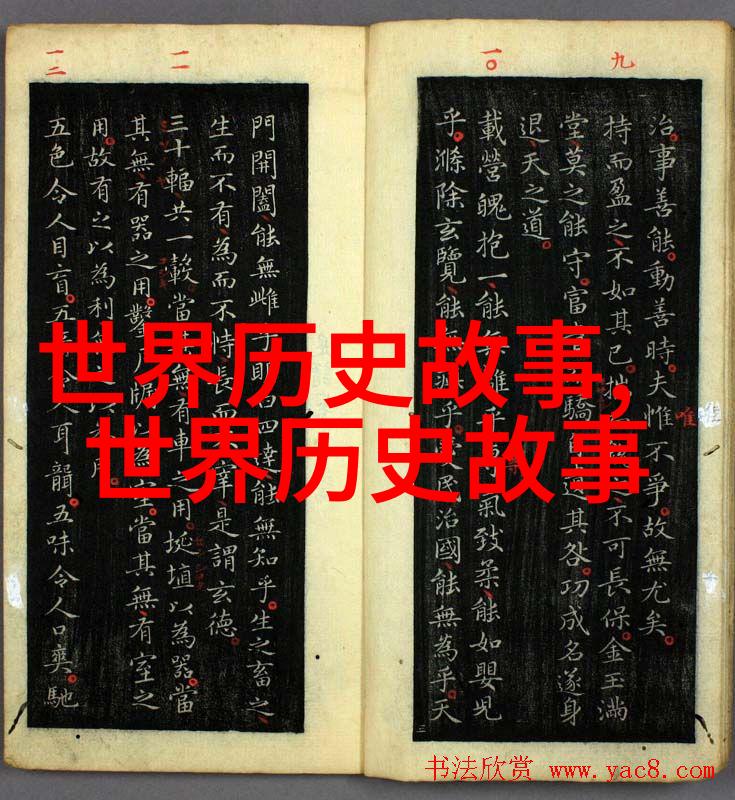 九
一〇
治事善能動善時夫惟不爭故無尤矣
唯
持而盈之不如其已揣不可長保金玉滿
堂莫之能守富驕自遺其咎功成名遂身
退天之道
載營魄抱一能無離乎氣致柔能如嬰兒
乎滌除玄覽能無疵乎愛民治國能無為乎天
一一
一二
門開闔能無雌乎明白四達能無知乎生之畜之
生而不有為而不恃長而不宰是謂玄德
三十輻共一轂當其無有車之用埏埴以為器當
其無有器之用鑿戶牖以為室當其無有室之
用故有之以為利以為用
五色令人目盲五令人耳聾五味令人口爽馳
世界历史故事,
世界历史故事
书法欣赏 www.yac8.com